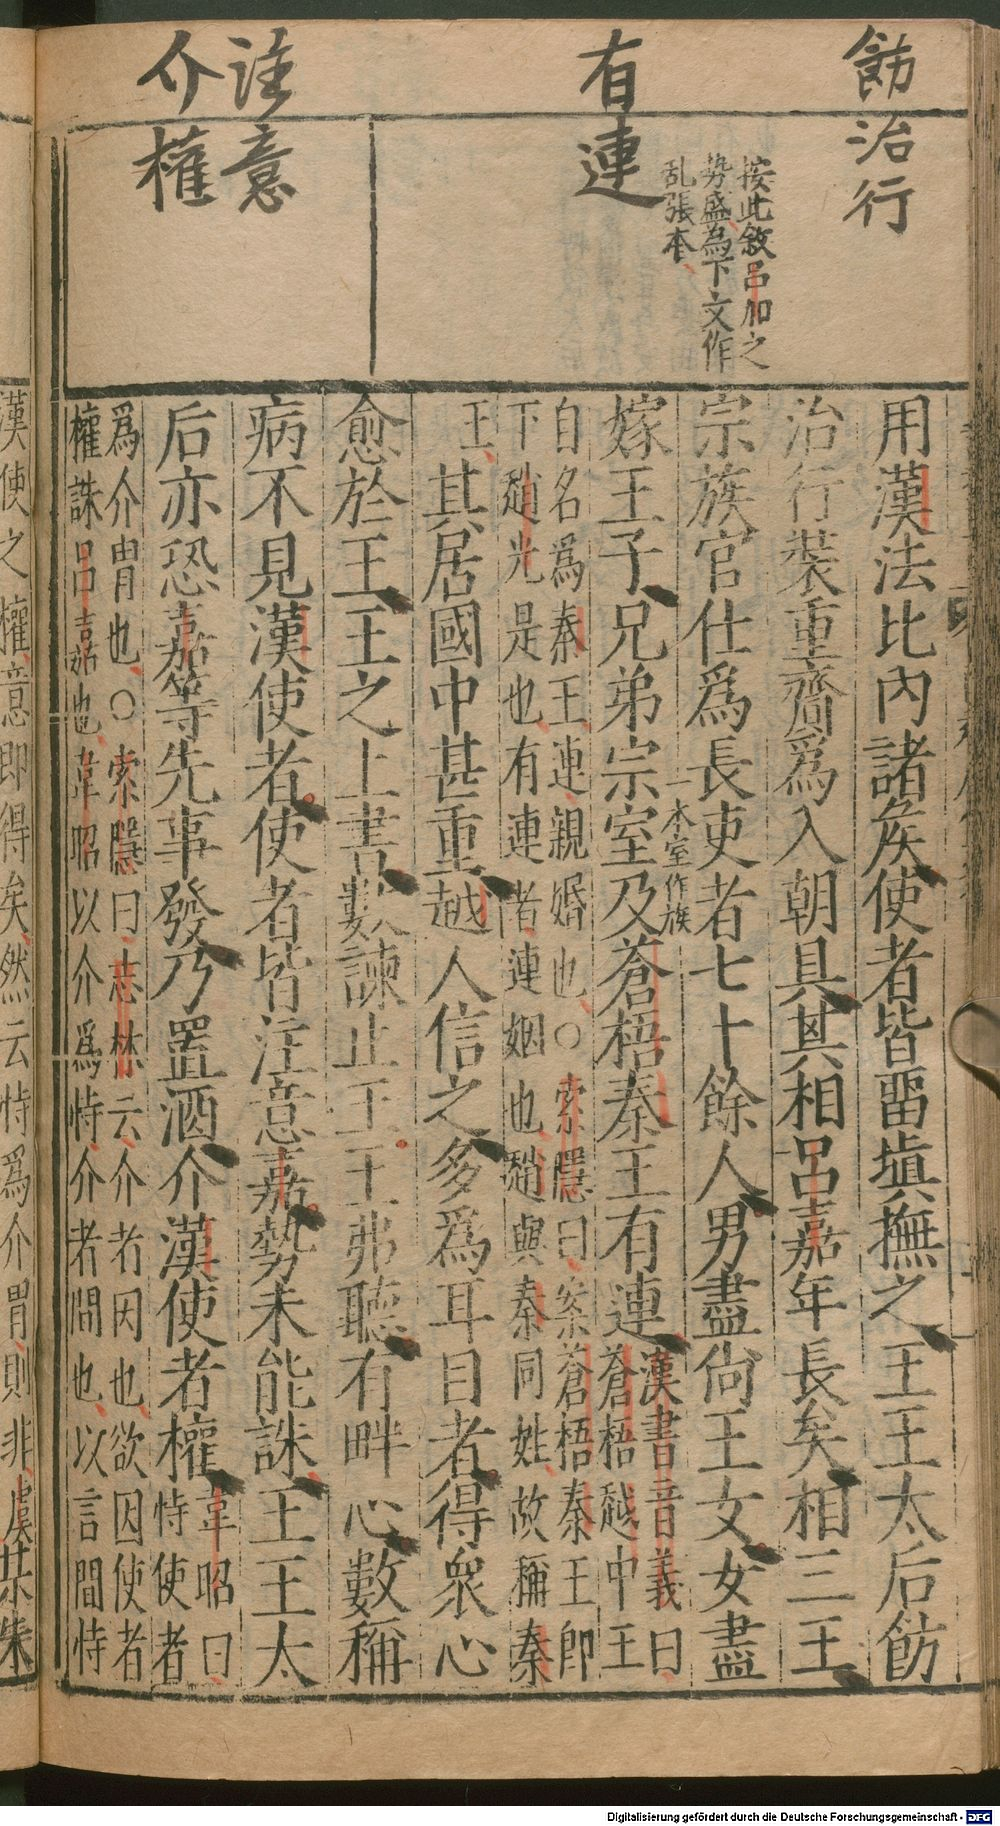 飭治行
有連
注意
介權
按此敘呂加之
势盛為下文作
乱張本
用漢法比內諸矦使者皆畱塡撫之王王太后飭
治行裝重齎爲入朝具其相呂嘉年長矣相三王
宗族官仕爲長吏者七十餘人男盡尙王女女盡
一本室作族
嫁王子兄弟宗室及蒼梧秦王有連漢書音義曰
蒼梧越中王
自名爲秦王連親婚也○索隱曰案蒼梧秦王即
下趙光是也有連者連姻也趙與秦同姓故稱秦
王
其居國中甚重越人信之多爲耳目者得衆心
愈於王王之上書數諫止王王弗聽有畔心數稱
病不見漢使者使者皆注意嘉勢未能誅王王太
后亦恐嘉等先事發乃置酒介漢使者權韋昭曰
恃使者
爲介冑也○索隱曰志林云介者因也欲因使者
權誅呂嘉也韋昭以介爲恃介者間也以言間恃
漢使之權意即得矣然云恃爲介冑則非虞
Digitalisierung gefördert durch die Deutsche Forschungsgemeinschaft - DFG